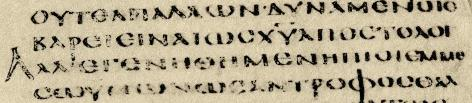 ΟΥΤΕΑΠΑΛΛΩΝ·ΔΥΝΑΜΕΝΟΙΕ
ΒΑΡΕΙΕΙΝΑΙΩϹΧ̅Υ̅ΑΠΟϹΤΟΛΟΙ
ΑΛΛΕΓΕΝΗΘΗΜΕΝΗΠΙΟΙΕΜΜΕ
ϹΩΥΜΩΝΩϹΑΝΤΡΟΦΟϹΘΑΛ